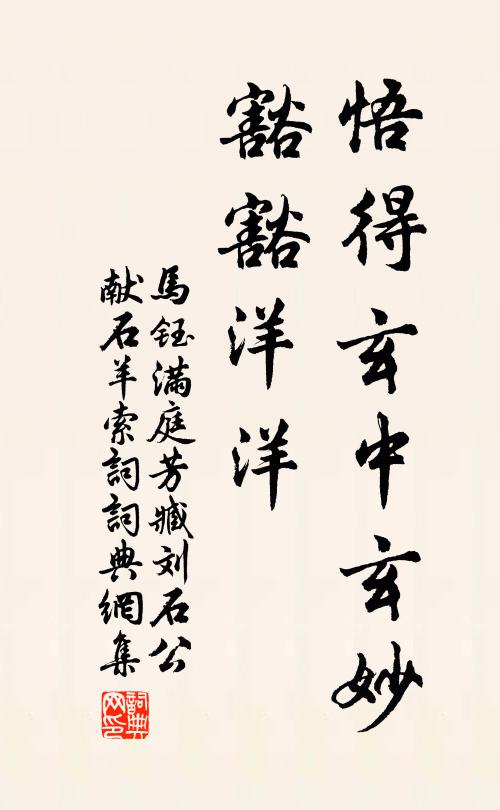 悟得玄中玄妙
豁豁洋洋
馬鈺滿庭芳臧刘石公
献石羊索詞詞典網集
詞典
网印